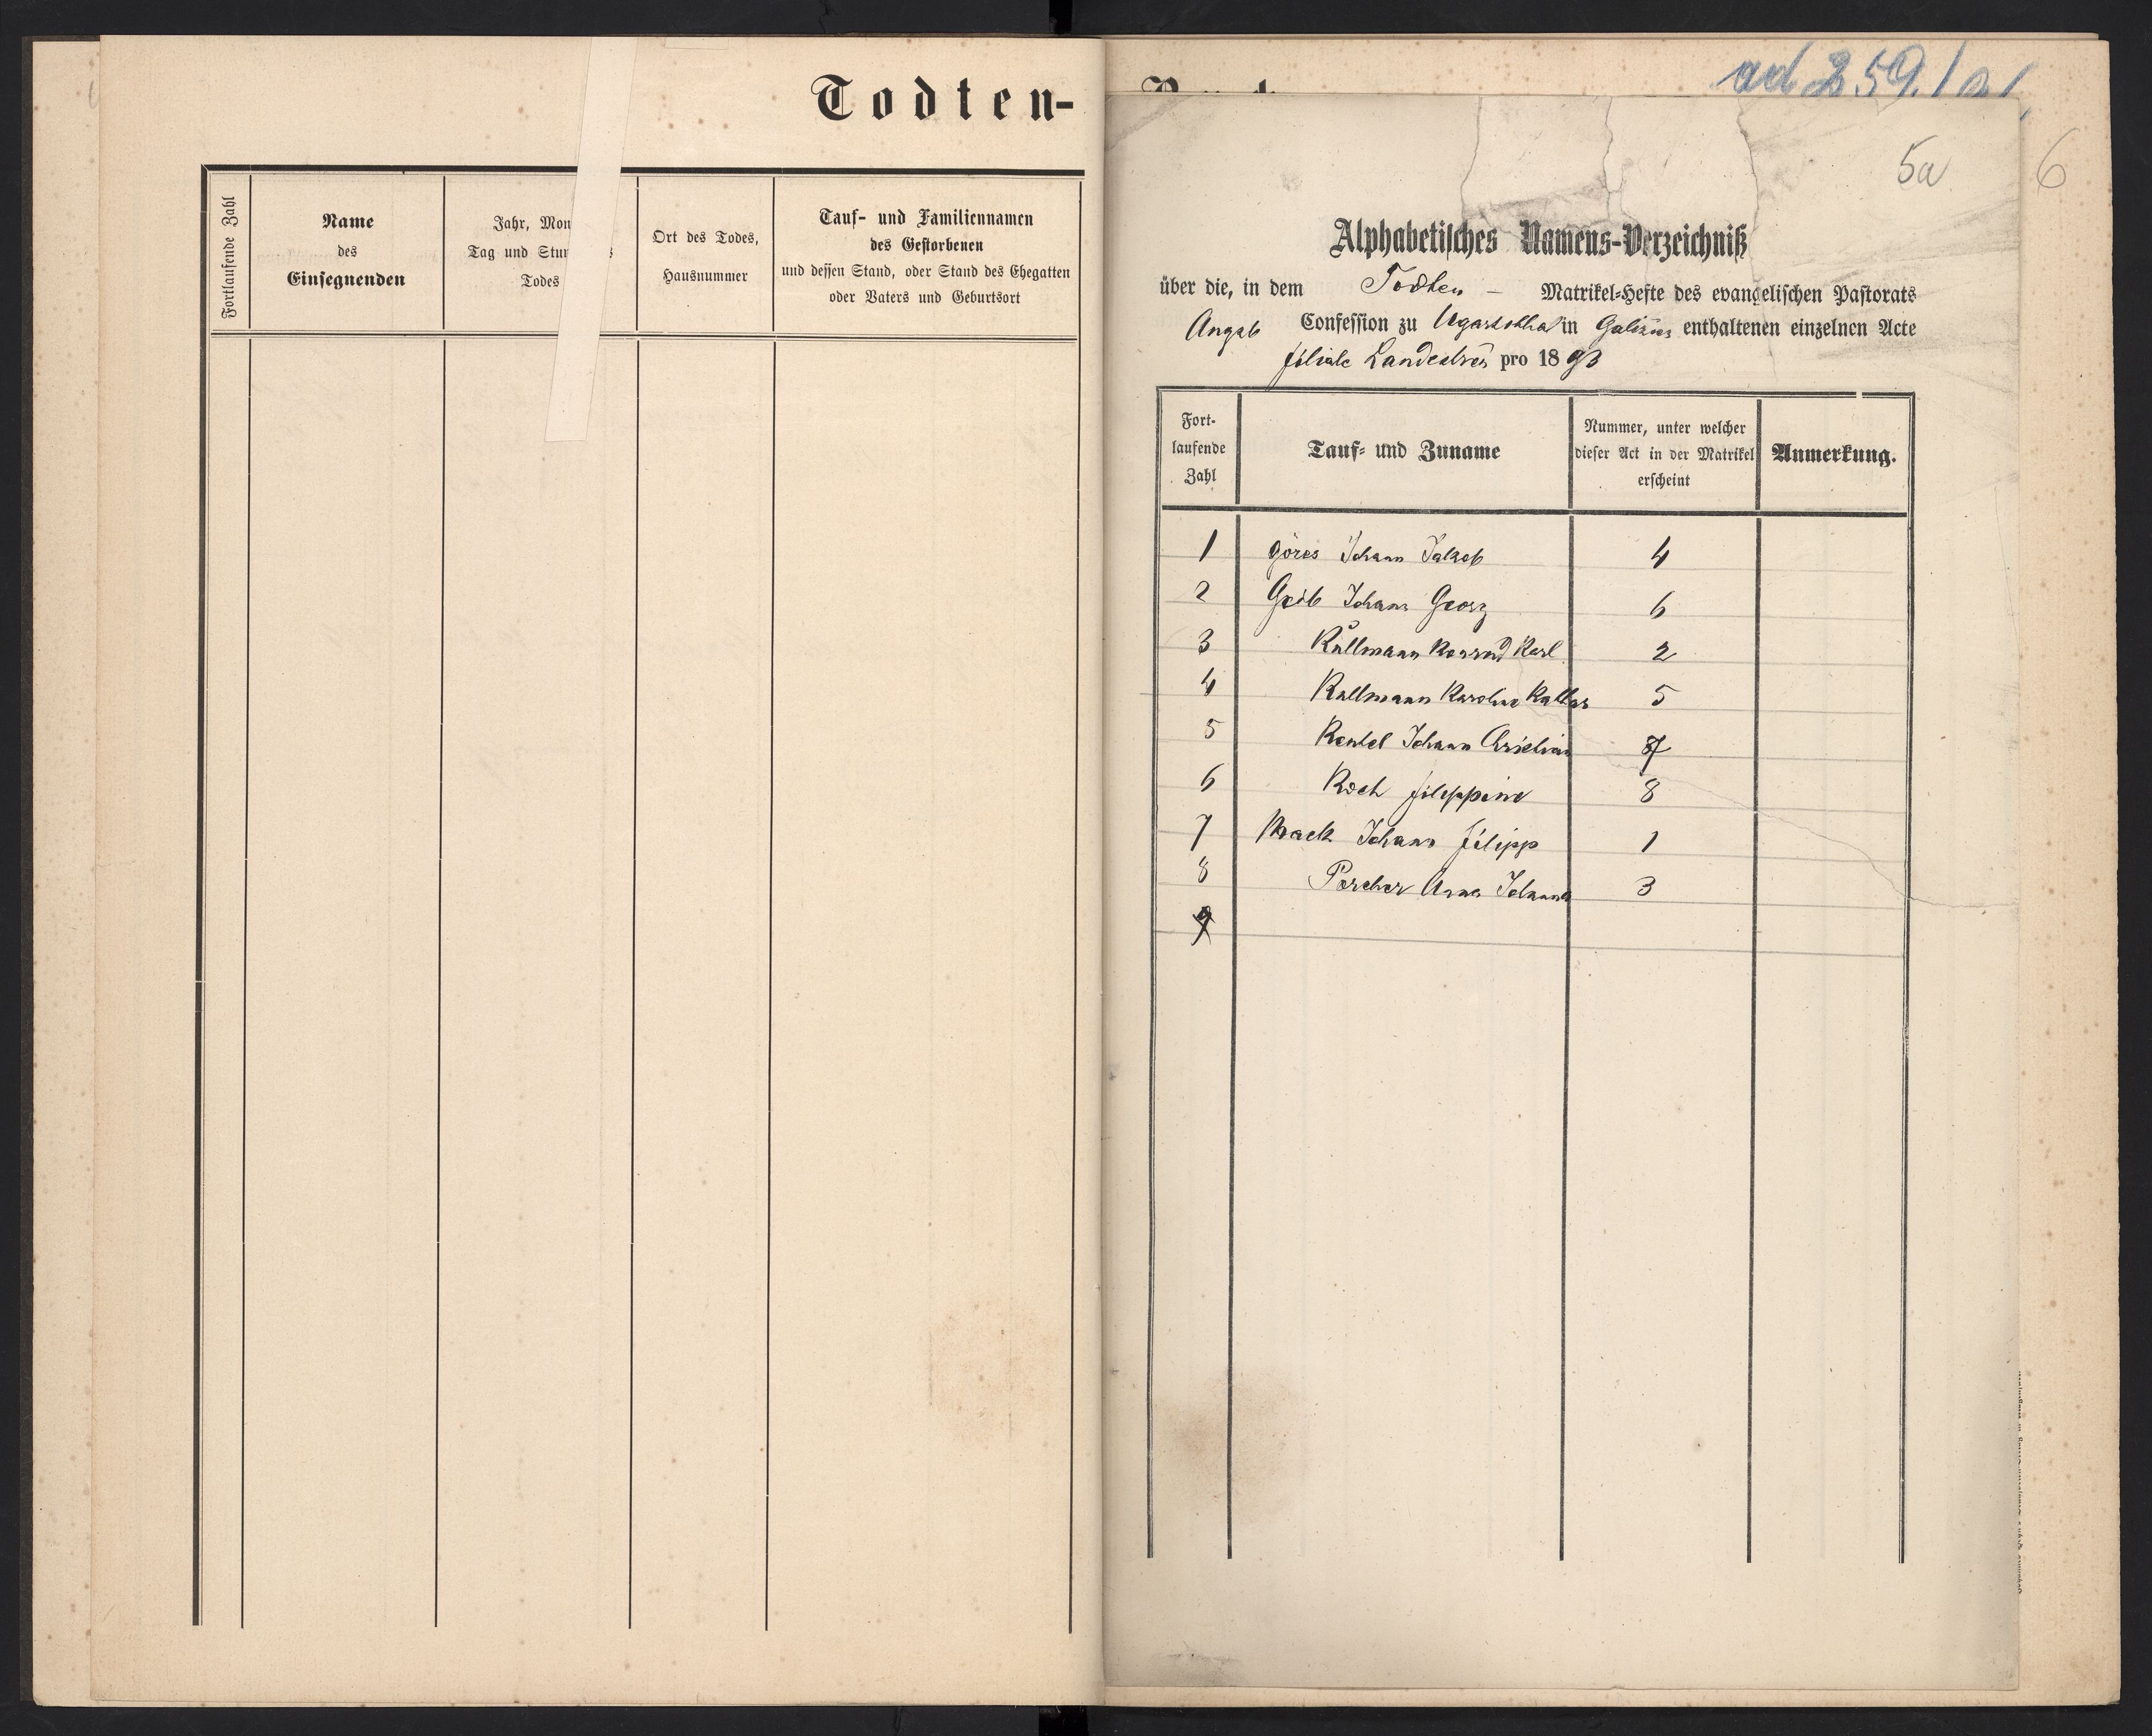 Todten-
Fortlaufende Zahl
Name
des
Einsegnenden
Jahr, Mon
Tag und Stun
Todes
Ort des Todes,
Hausnummer
Tauf- und Familiennamen
des Gestorbenen
und dessen Stand, oder Stand des Ehegatten
oder Vaters und Geburtsort
ad 259.1
5a
6
Alphabetisches Namens-Verzeichniß
über die, in dem Todten – Matrikel-Hefte des evangelischen Pastorats
Augsb Confession zu Ugartsthal in Galizien enthaltenen einzelnen Acte
filiale Landestreu pro 1893
Fort-
laufende
Zahl
Tauf- und Zuname
Nummer, unter welcher
dieser Act in der Matrikel
erscheint
Anmerkung.
1 Göres Johann Jakob 4
2 Johann Georg 6
3 Kullmann Konrad Karl 2
4 Kullmann Karoline 5
5 Johann Christian 7
6 Koch Filippine 8
7 Mack Johann Filipp 1
8 Porcher Anna Johanna 3
9